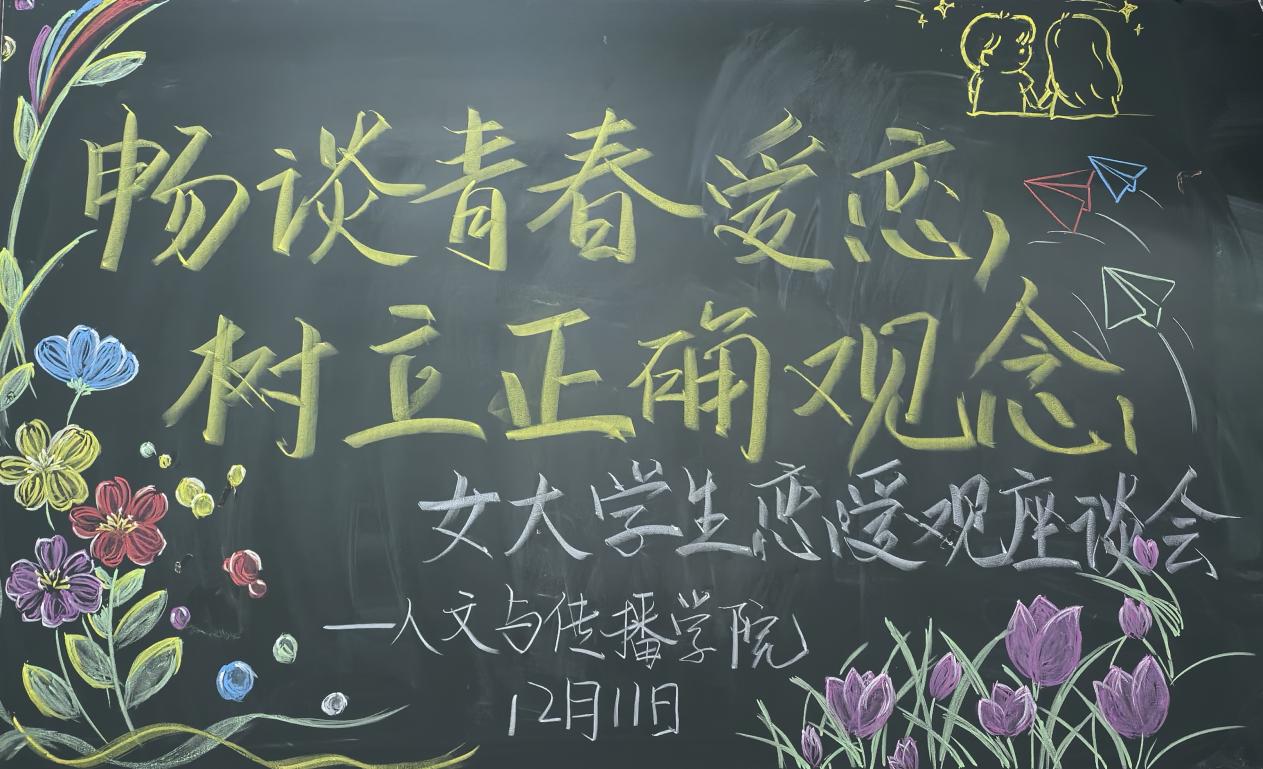 畅谈青春爱恋,
树立正确观念
女大学生恋爱观座谈会
—人文与传播学院
12月11日